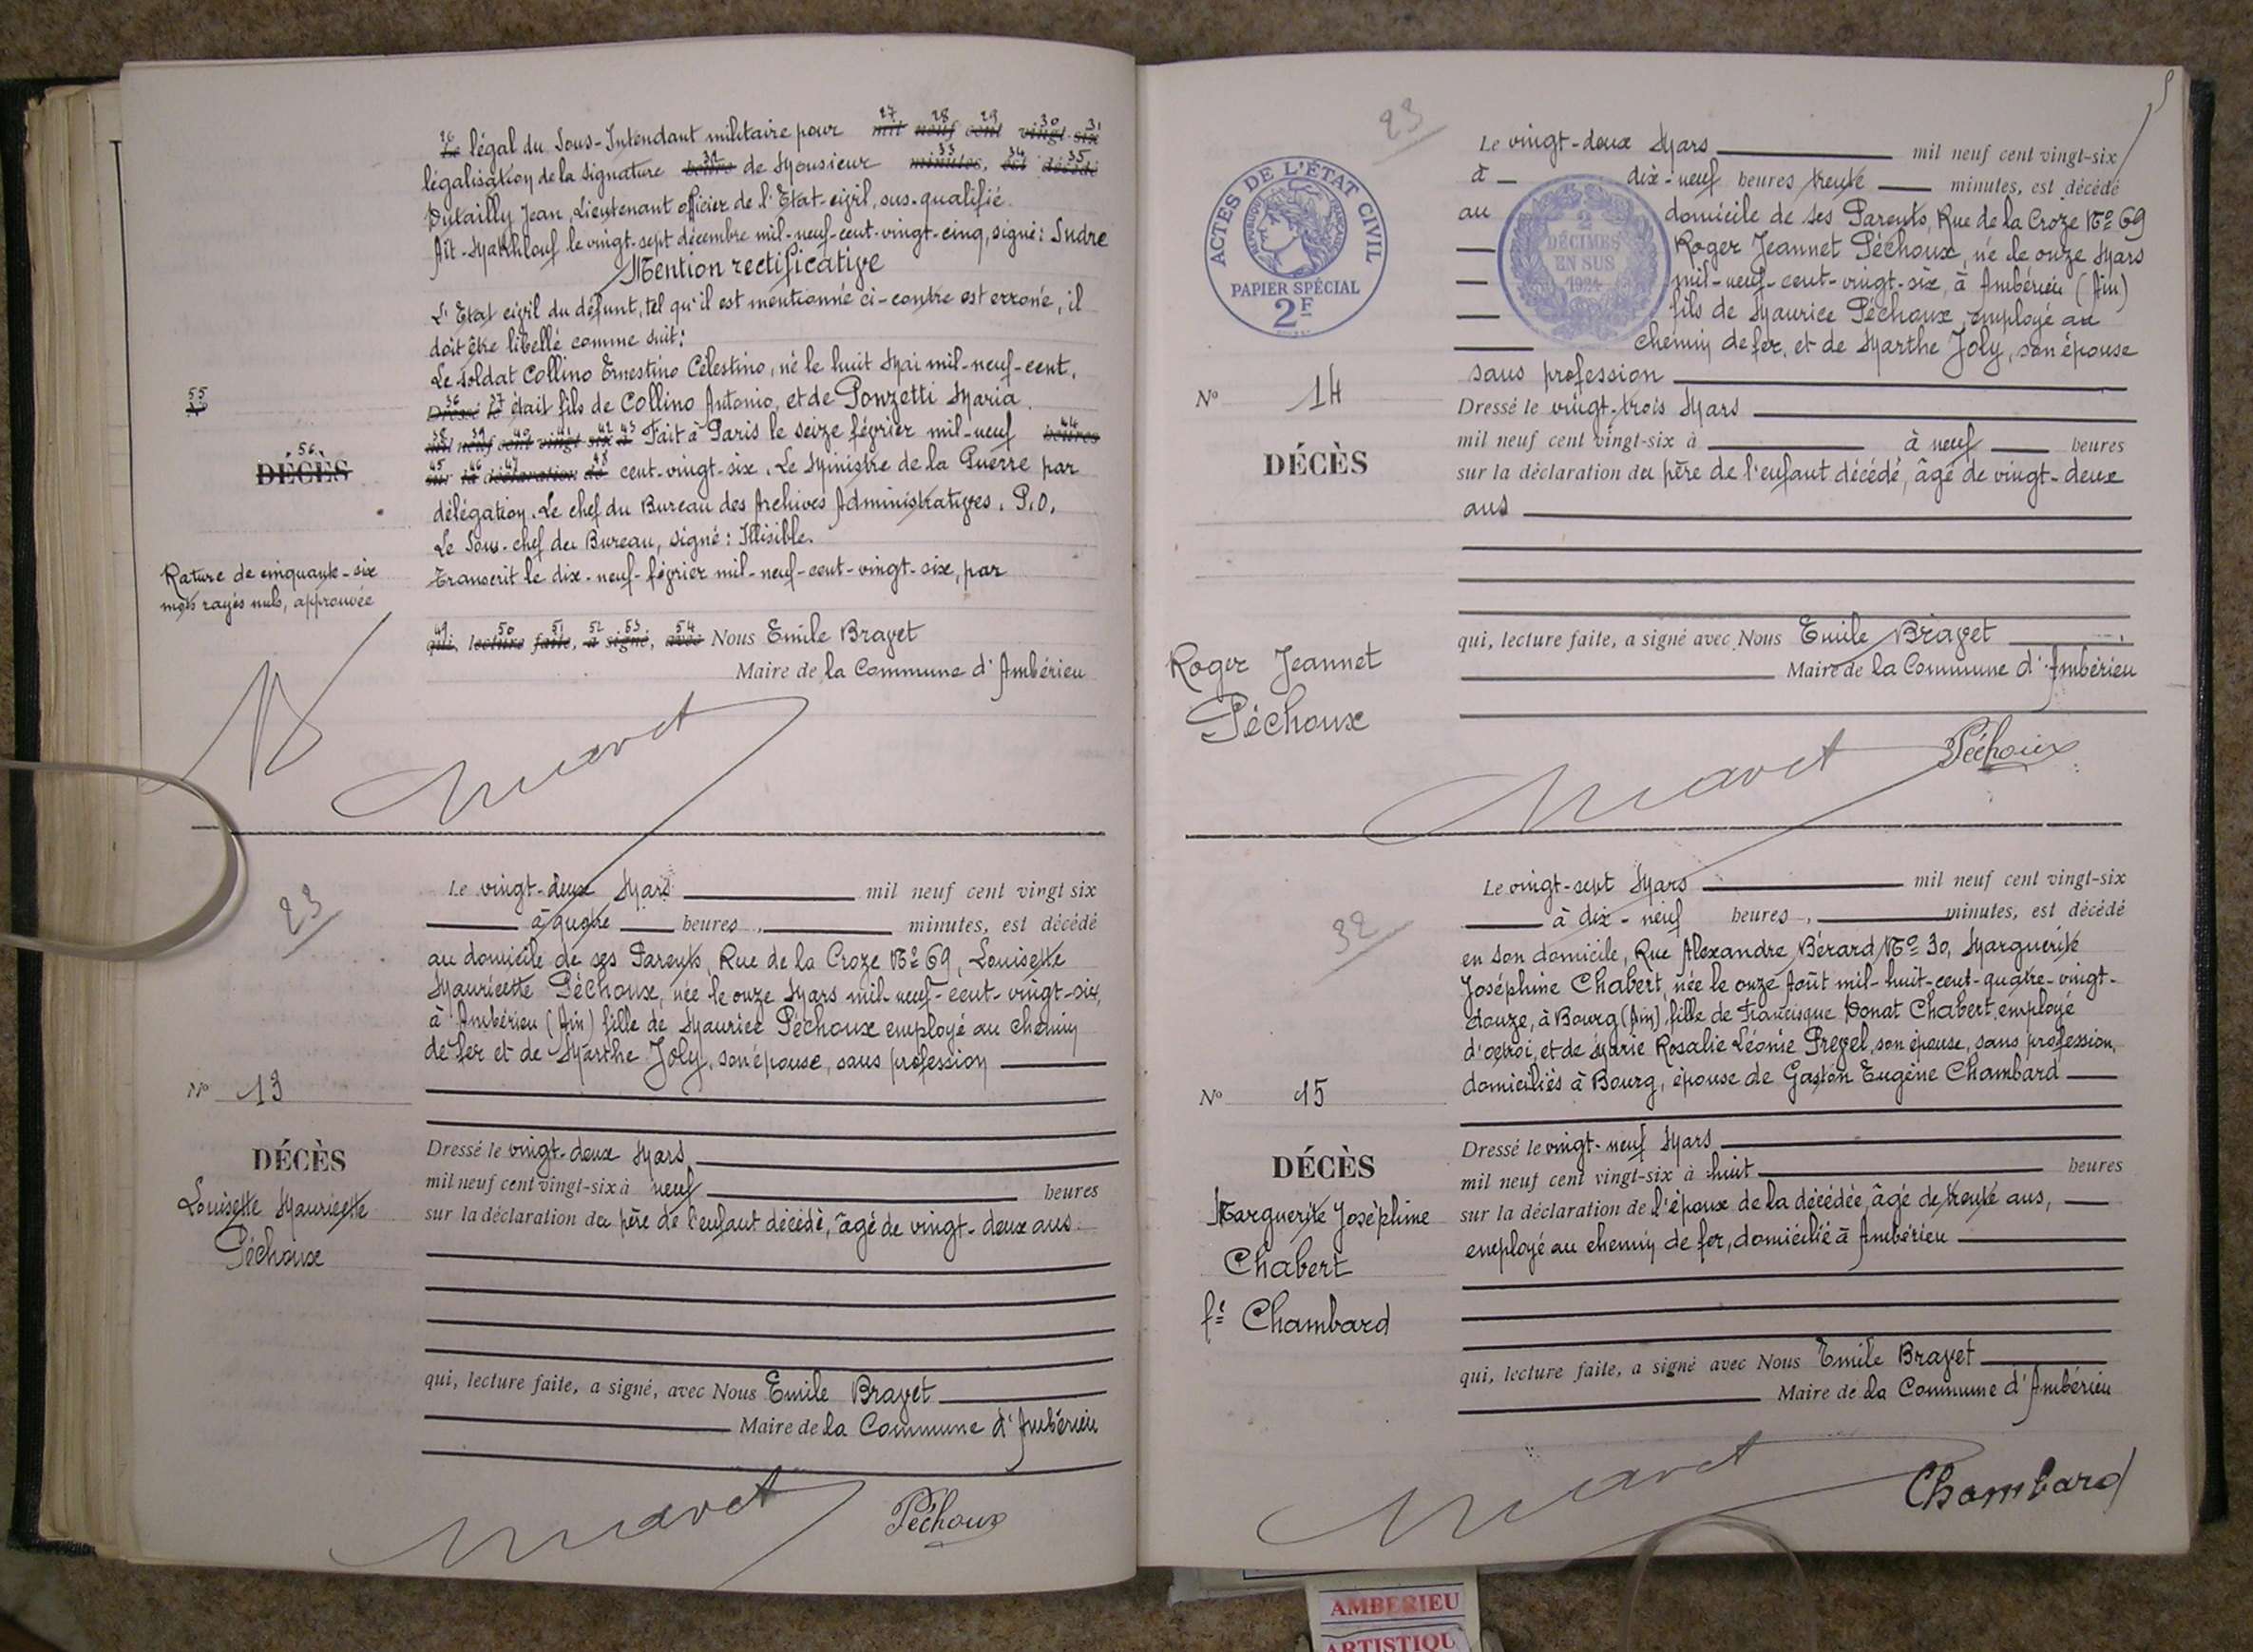 26 27 28 29 30 31
Le légal du Sous-Intendant militaire pour mil neuf cent vingt six
légalisation de la signature heures de Monsieur minutes, est décédé
32 33 34 35
Dutailly Jean, Lieutenant officier de l'Etat-civil, sus-qualifié.
Aït-Makhlouf le vingt-sept décembre mil-neuf-cent-vingt-cinq, signé: Indre
Mention rectificative
L'Etat civil du défunt, tel qu'il est mentionné ci-contre est erroné, il
doit être libellé comme suit:
Le soldat Collino Ernestino Célestino, né le huit Mai mil-neuf-cent,
55
N°
36 37
Dressé le était fils de Collino Antonio, et de Ponzetti Maria.
38 39 40 41 42 43 44
mil neuf cent vingt six à Fait à Paris le seize février mil-neuf heures
56
DÉCÈS
45 46 47 48
sur la déclaration de cent-vingt-six. Le Ministre de la Guerre par
délégation. Le chef du Bureau des Archives Administratives. P.O.
Le Sous-chef du Bureau, signé: Illisible.
Rature de cinquante-six
mots rayés nuls, approuvée
Transcrit le dix-neuf-février mil-neuf-cent-vingt-six, par
49 50 51 52 53 54
qui, lecture faite, a signé, avec Nous Emile Bravet
Maire de la Commune d'Ambérieu
23
N° 13
DÉCÈS
Louisette Mauricette
Péchoux
Le vingt-deux Mars mil neuf cent vingt six
à quatre heures, minutes, est décédé
au domicile de ses Parents, Rue de la Croze N° 69, Louisette
Mauricette Péchoux, née le onze Mars mil-neuf-cent-vingt-six,
à Ambérieu (Ain) fille de Maurice Péchoux employé au chemin
de fer et de Marthe Joly, son épouse, sans profession
Dressé le vingt-deux Mars
mil neuf cent vingt-six à neuf heures
sur la déclaration du père de l'enfant décédé, âgé de vingt-deux ans
qui, lecture faite, a signé, avec Nous Emile Bravet
Maire de la Commune d'Ambérieu
Péchoux
23
ACTES DE L'ÉTAT CIVIL
RÉPUBLIQUE FRANÇAISE
PAPIER SPÉCIAL
2F
2
DÉCIMES
EN SUS
1924
N° 14
DÉCÈS
Roger Jeannet
Péchoux
Le vingt-deux Mars mil neuf cent vingt-six
à dix-neuf heures trente minutes, est décédé
au domicile de ses Parents, Rue de la Croze N° 69
Roger Jeannet Péchoux, né le onze Mars
mil-neuf-cent-vingt-six, à Ambérieu (Ain)
fils de Maurice Péchoux, employé au
chemin de fer, et de Marthe Joly, son épouse
sans profession
Dressé le vingt-trois Mars
mil neuf cent vingt-six à à neuf heures
sur la déclaration du père de l'enfant décédé, âgé de vingt-deux
ans
qui, lecture faite, a signé avec Nous Emile Bravet
Maire de la Commune d'Ambérieu
Péchoux
32
N° 15
DÉCÈS
Marguerite Joséphine
Chabert
fe Chambard
Le vingt-sept Mars mil neuf cent vingt-six
à dix-neuf heures, minutes, est décédé
en son domicile, Rue Alexandre Bérard N° 30, Marguerite
Joséphine Chabert, née le onze Août mil-huit-cent-quatre-vingt-
douze, à Bourg (Ain) fille de Francisque Donat Chabert, employé
d'octroi, et de Marie Rosalie Léonie Prevel, son épouse, sans profession,
domiciliés à Bourg, épouse de Gaston Eugène Chambard
Dressé le vingt-neuf Mars
mil neuf cent vingt-six à huit heures
sur la déclaration de l'époux de la décédée, âgé de trente ans,
employé au chemin de fer, domicilié à Ambérieu
qui, lecture faite, a signé avec Nous Emile Bravet
Maire de la Commune d'Ambérieu
Chambard
AMBERIEU
ARTISTIQU